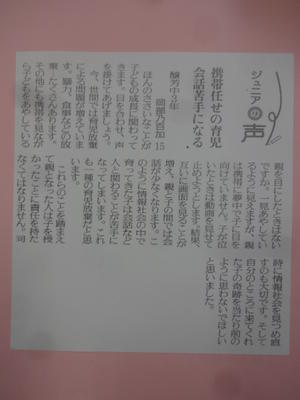 ジュニアの声
携帯任せの育児
会話苦手になる
醸芳中3年
15
ほんのささいなことが
子どもの成長に関わって
きます。目を合わせ、声
を掛けてあげましょう。
今、世間では育児放棄
による問題が増えていま
す。暴力、食事などの放
棄…たくさんあります。
その他にも携帯を見なが
ら子どもをあやしている
親を目にしたときはない
ですか。一見あやしてい
るように見えますが、親
は携帯に夢中で子に目を
向けていません。子が泣
いたときは動画を見せて
止めようとします。結果、
互いに画面を見ることが
増え、親と子の間では会
話が少なくなります。こ
のように情報社会の中で
育ってきた子は会話など
人と関わることが苦手に
なってしまいます。これ
も一種の育児放棄だと思
います。
これらのことを踏まえ
て親になった人は子を授
かったことに責任を持た
なくてはなりません。同
時に情報社会を見つめ直
すのも大切です。そして
自分のところに来てくれ
た子の奇跡を当たり前の
ように思わないでほしい
と思いました。